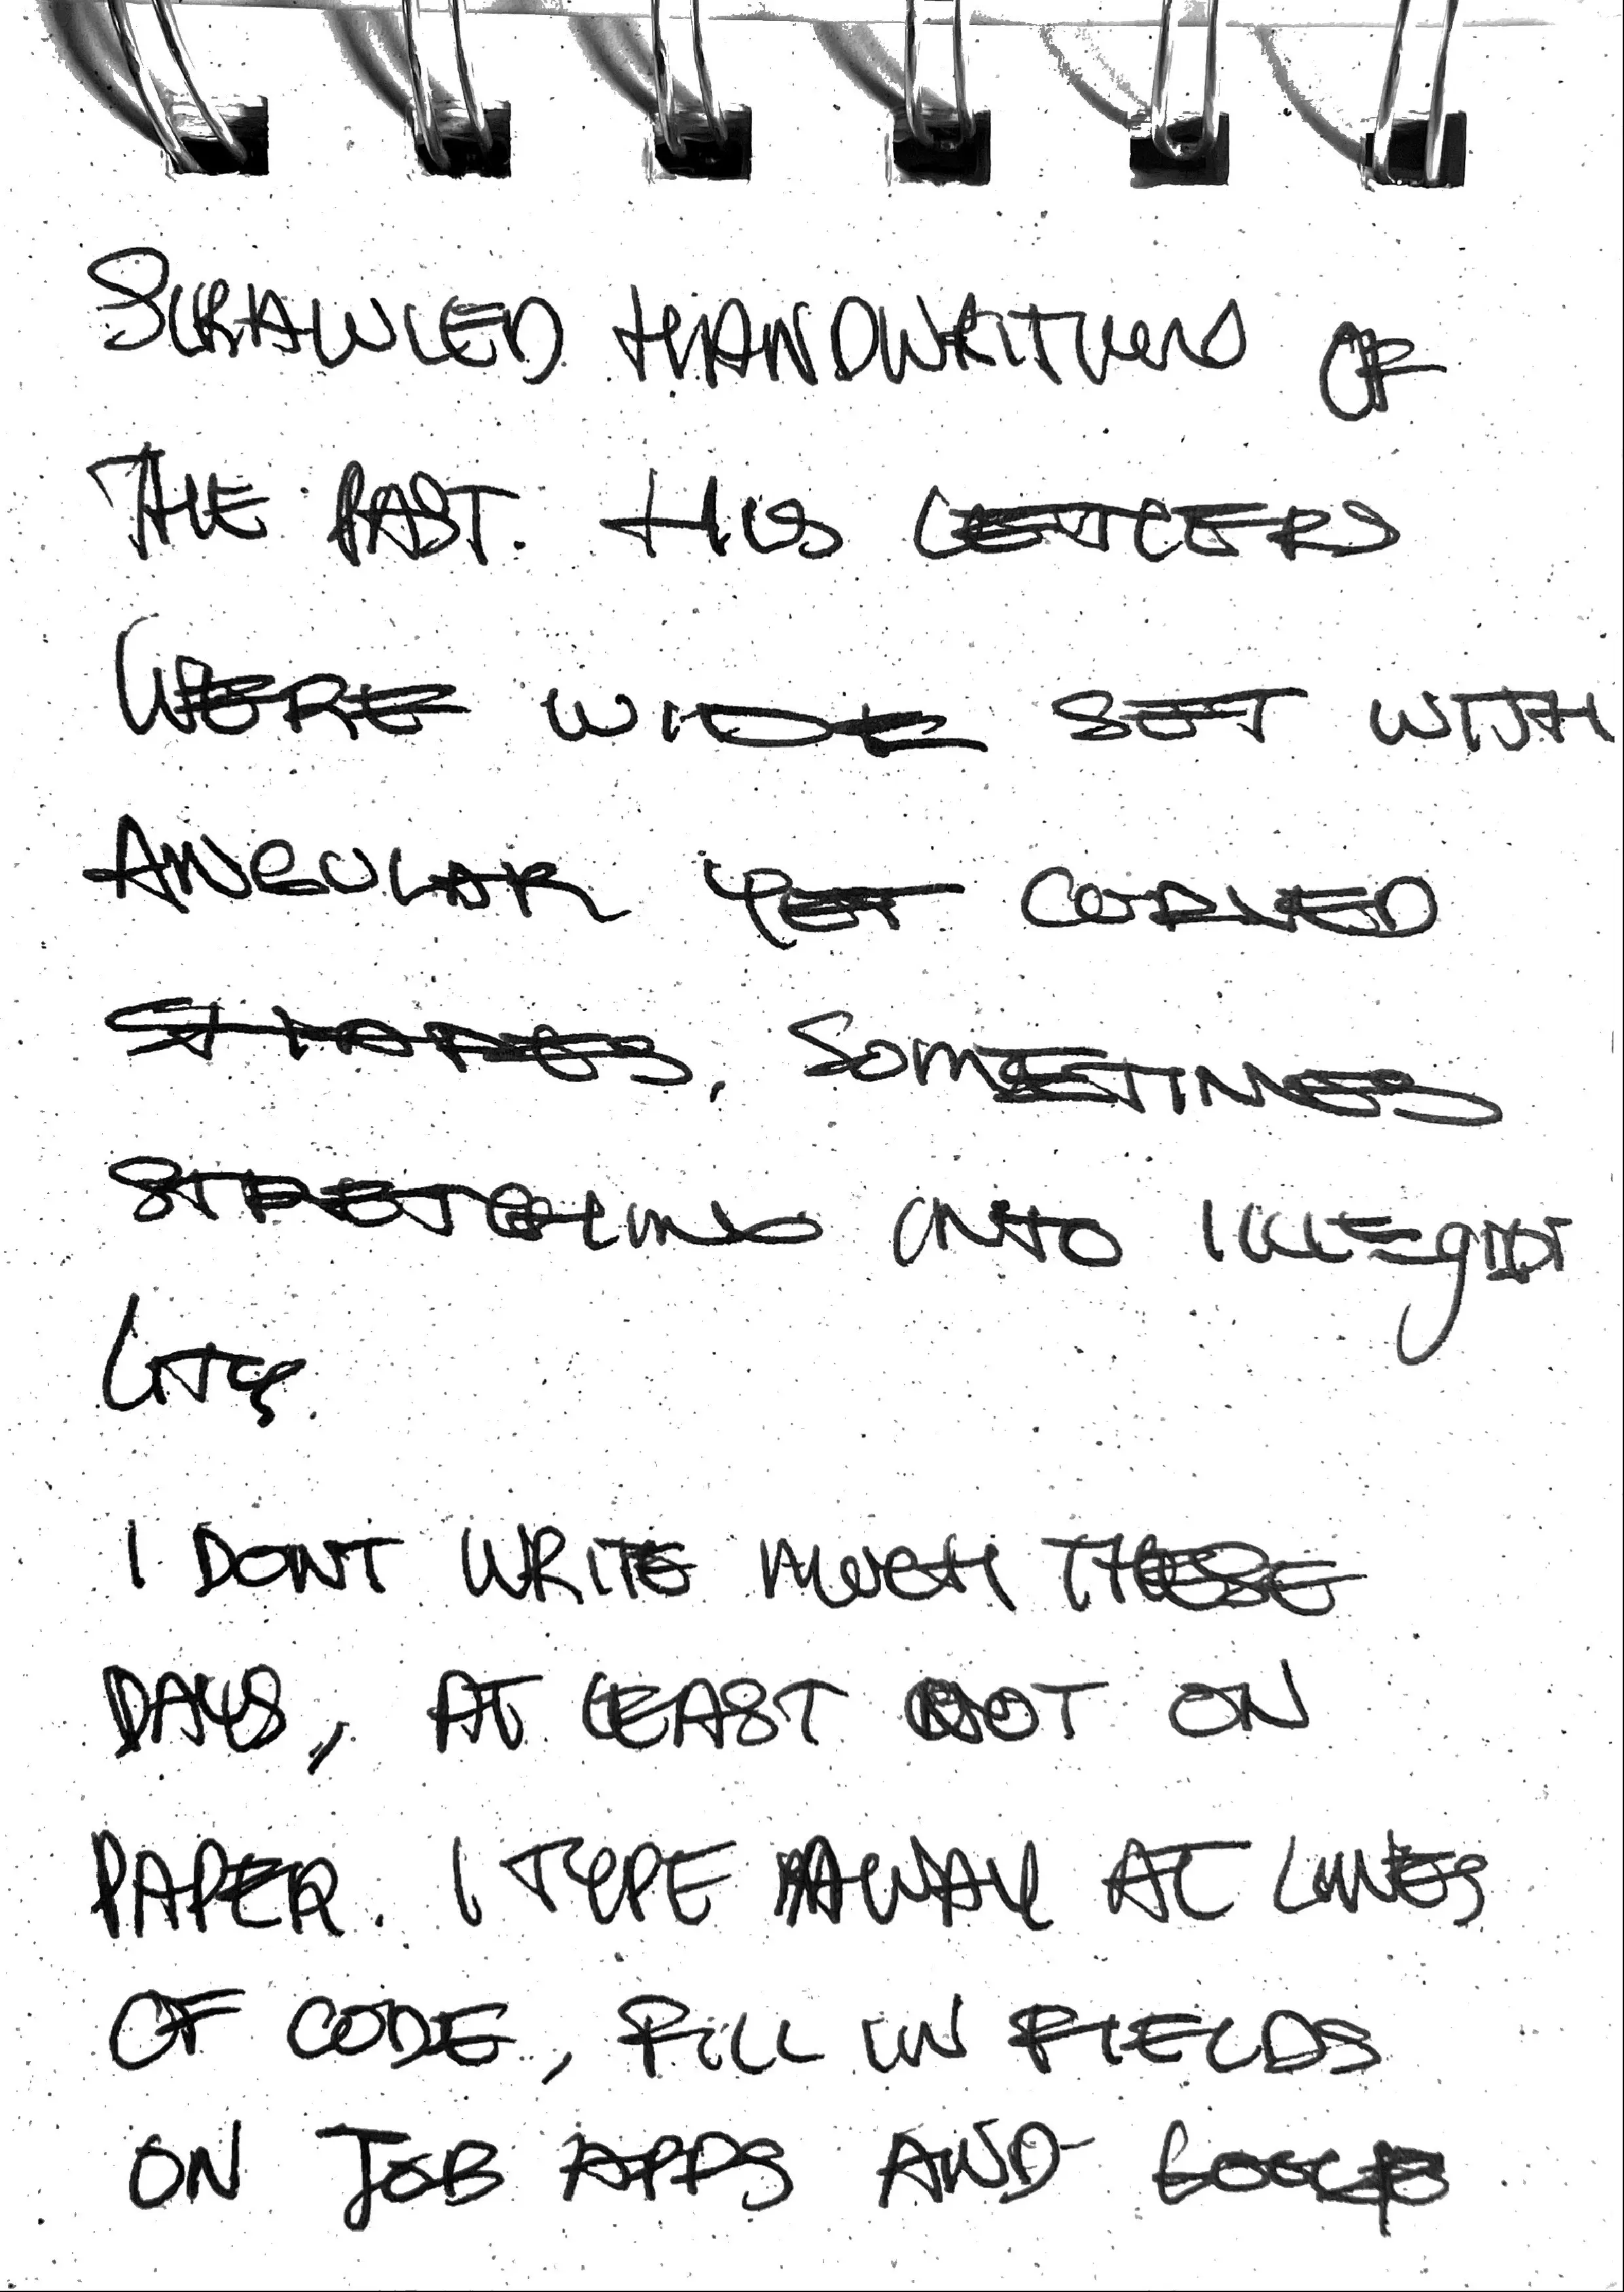 SCRAWLED HANDWRITING OF
THE PAST. HIS LETTERS
WERE WIDE SET WITH
ANGULAR YET CORVED
SHAPES, SOMETIMES
STRETCHING INTO ILLEGIBI
LITY.
I DONT WRITE MUCH THESE
DAYS, AT LEAST NOT ON
PAPER. I TYPE AWAY AT LINES
OF CODE, FILL IN FIELDS
ON JOB APPS AND